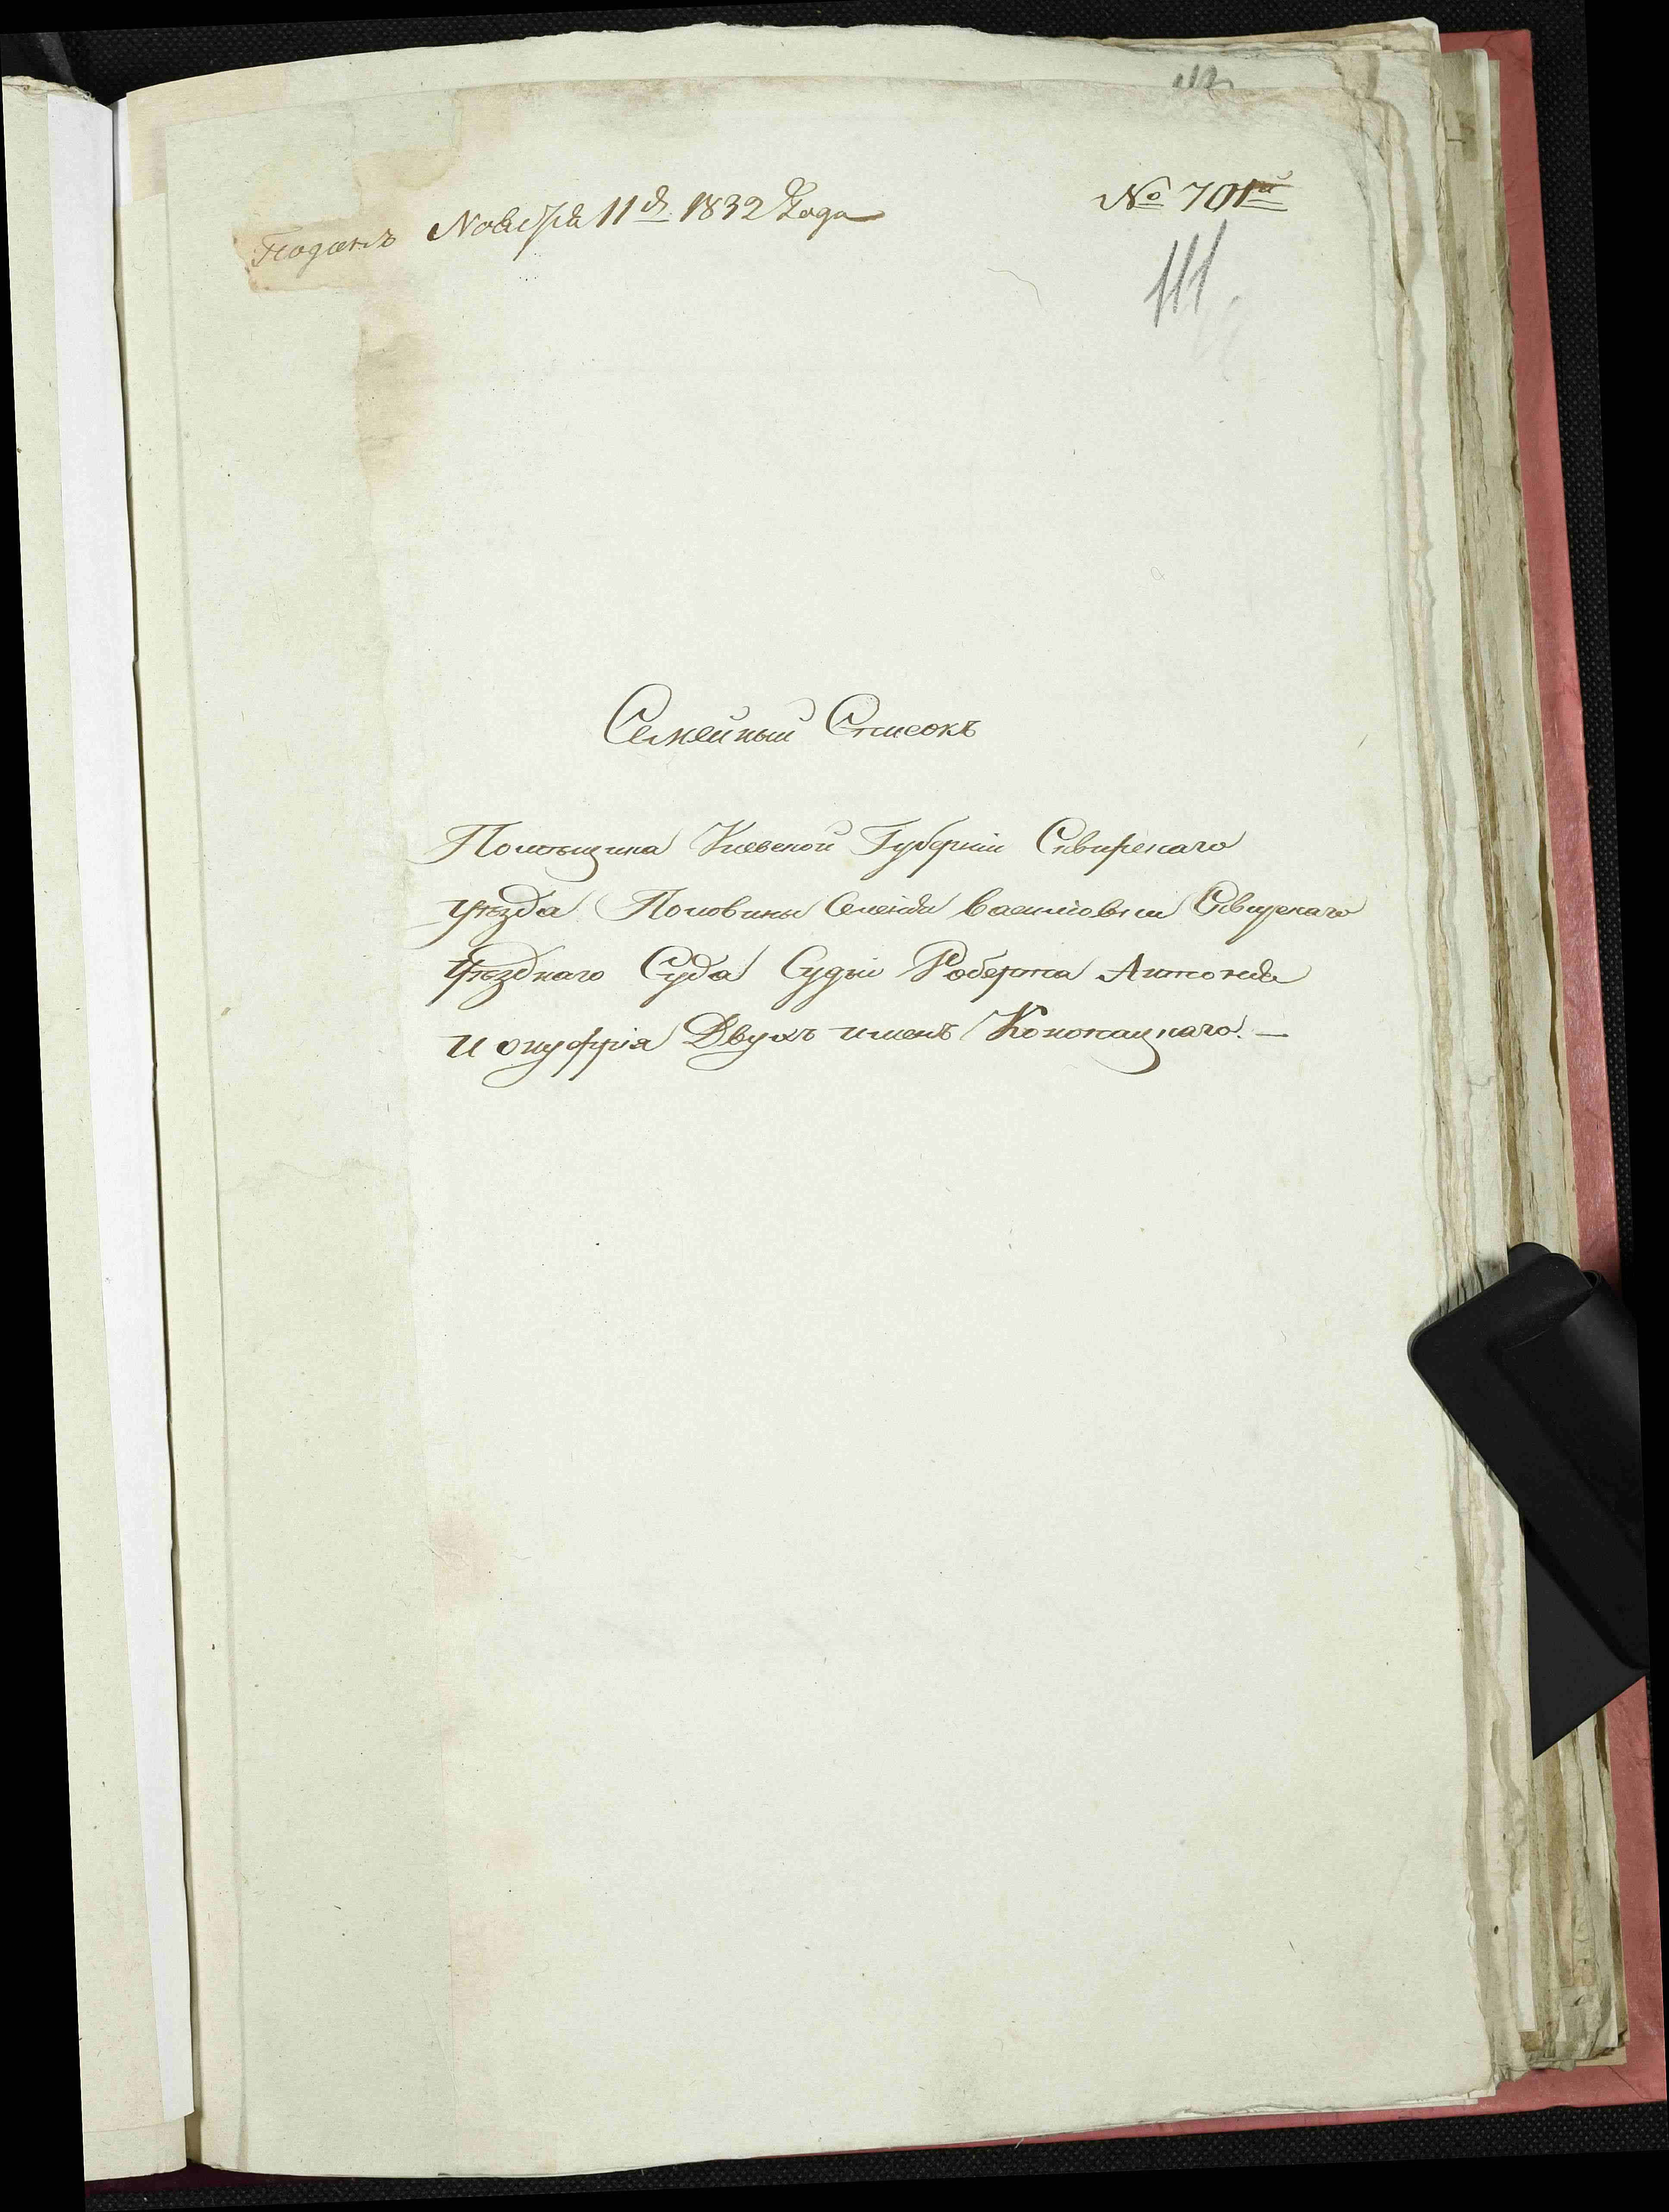 Поданъ Ноября 11 д. 1832 Года
№ 701й
111
Семейный Списокъ
Помѣщика Кіевской Губерніи Сквирскаго
уѣзда Половины Селенія Сквирскаго
Уѣзднаго Суда Судьи Роберта Антонія
и онуфрія Двухъ именъ Конопацкаго. —